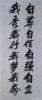 自尊自信自强自立
我我行我梦我